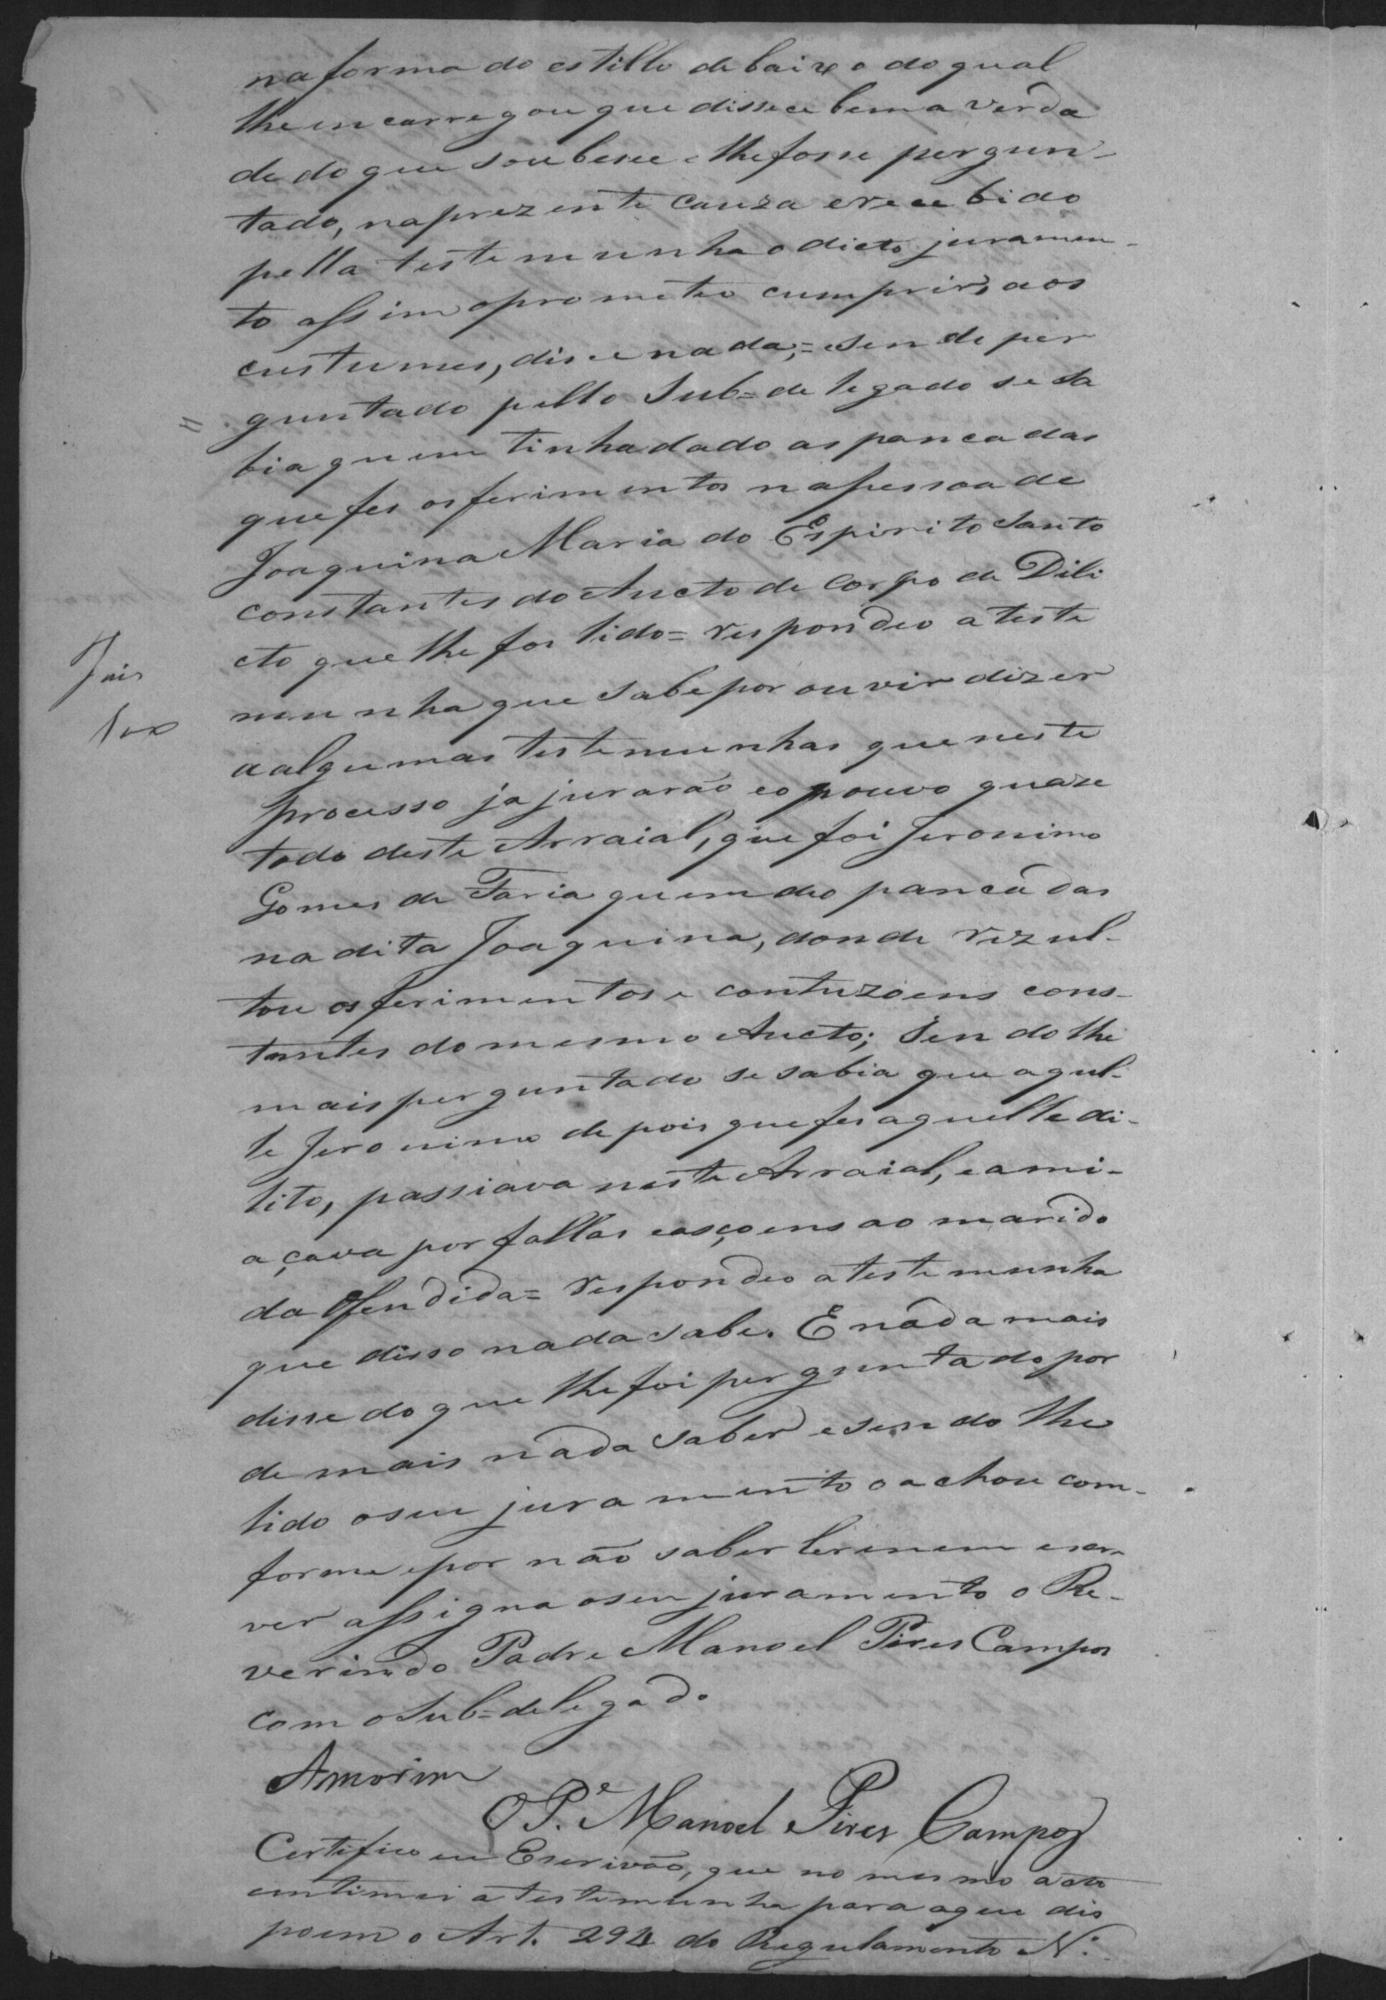 na forma do estillo debaixo do qual
lhe encarregou que dissece bem a verda
de do que soubece e lhe fosse pergun-
tado, na prezente cauza e recebido
pella testemunha o dicto juramen-
to assim o prometeo cumprir, aos
custumes, dice nada; = e sendo per
guntado pello Sub=delegado se sa
bia quem tinha dado as pancadas
que fes os ferimentos na pessoa de
Joaquina Maria do Espirito Santo
constantes do Aucto de Corpo de Dili
cto que lhe foi lido = respondeo a teste
munha que sabe por ouvir dizer
a algumas testemunhas que neste
processo ja jurarão e o pouvo quaze
todo deste Arraial, que foi Jeronimo
Gomes de Faria quem deo pancadas
na dita Joaquina, donde rezul-
tou os ferimentos e contuzoens cons-
tantes do mesmo Aucto; Sendo lhe
mais perguntado se sabia que aquel-
le Jeronimo depois que fes aquelle di-
lito, passiava neste Arraial, e ami-
açava por fallas e asçoens ao marido
da Ofendida = respondeo a testemunha
que disso nada sabe. E nada mais
disse do que lhe foi perguntado por
de mais nada saber e sendo lhe
lido o seu juramento o achou com-
forme e por não saber ler e nem escre
ver assigna o seu juramento o Re-
verindo Padre Manoel Pires Campos
com o Sub=delegado
Amorim
O P.e Manoel Pires Campos
Certifico eu Escrivão, que no mesmo acto
entimei a testemunha para o que dis
poem o Art. 294 do Regulamento N.o